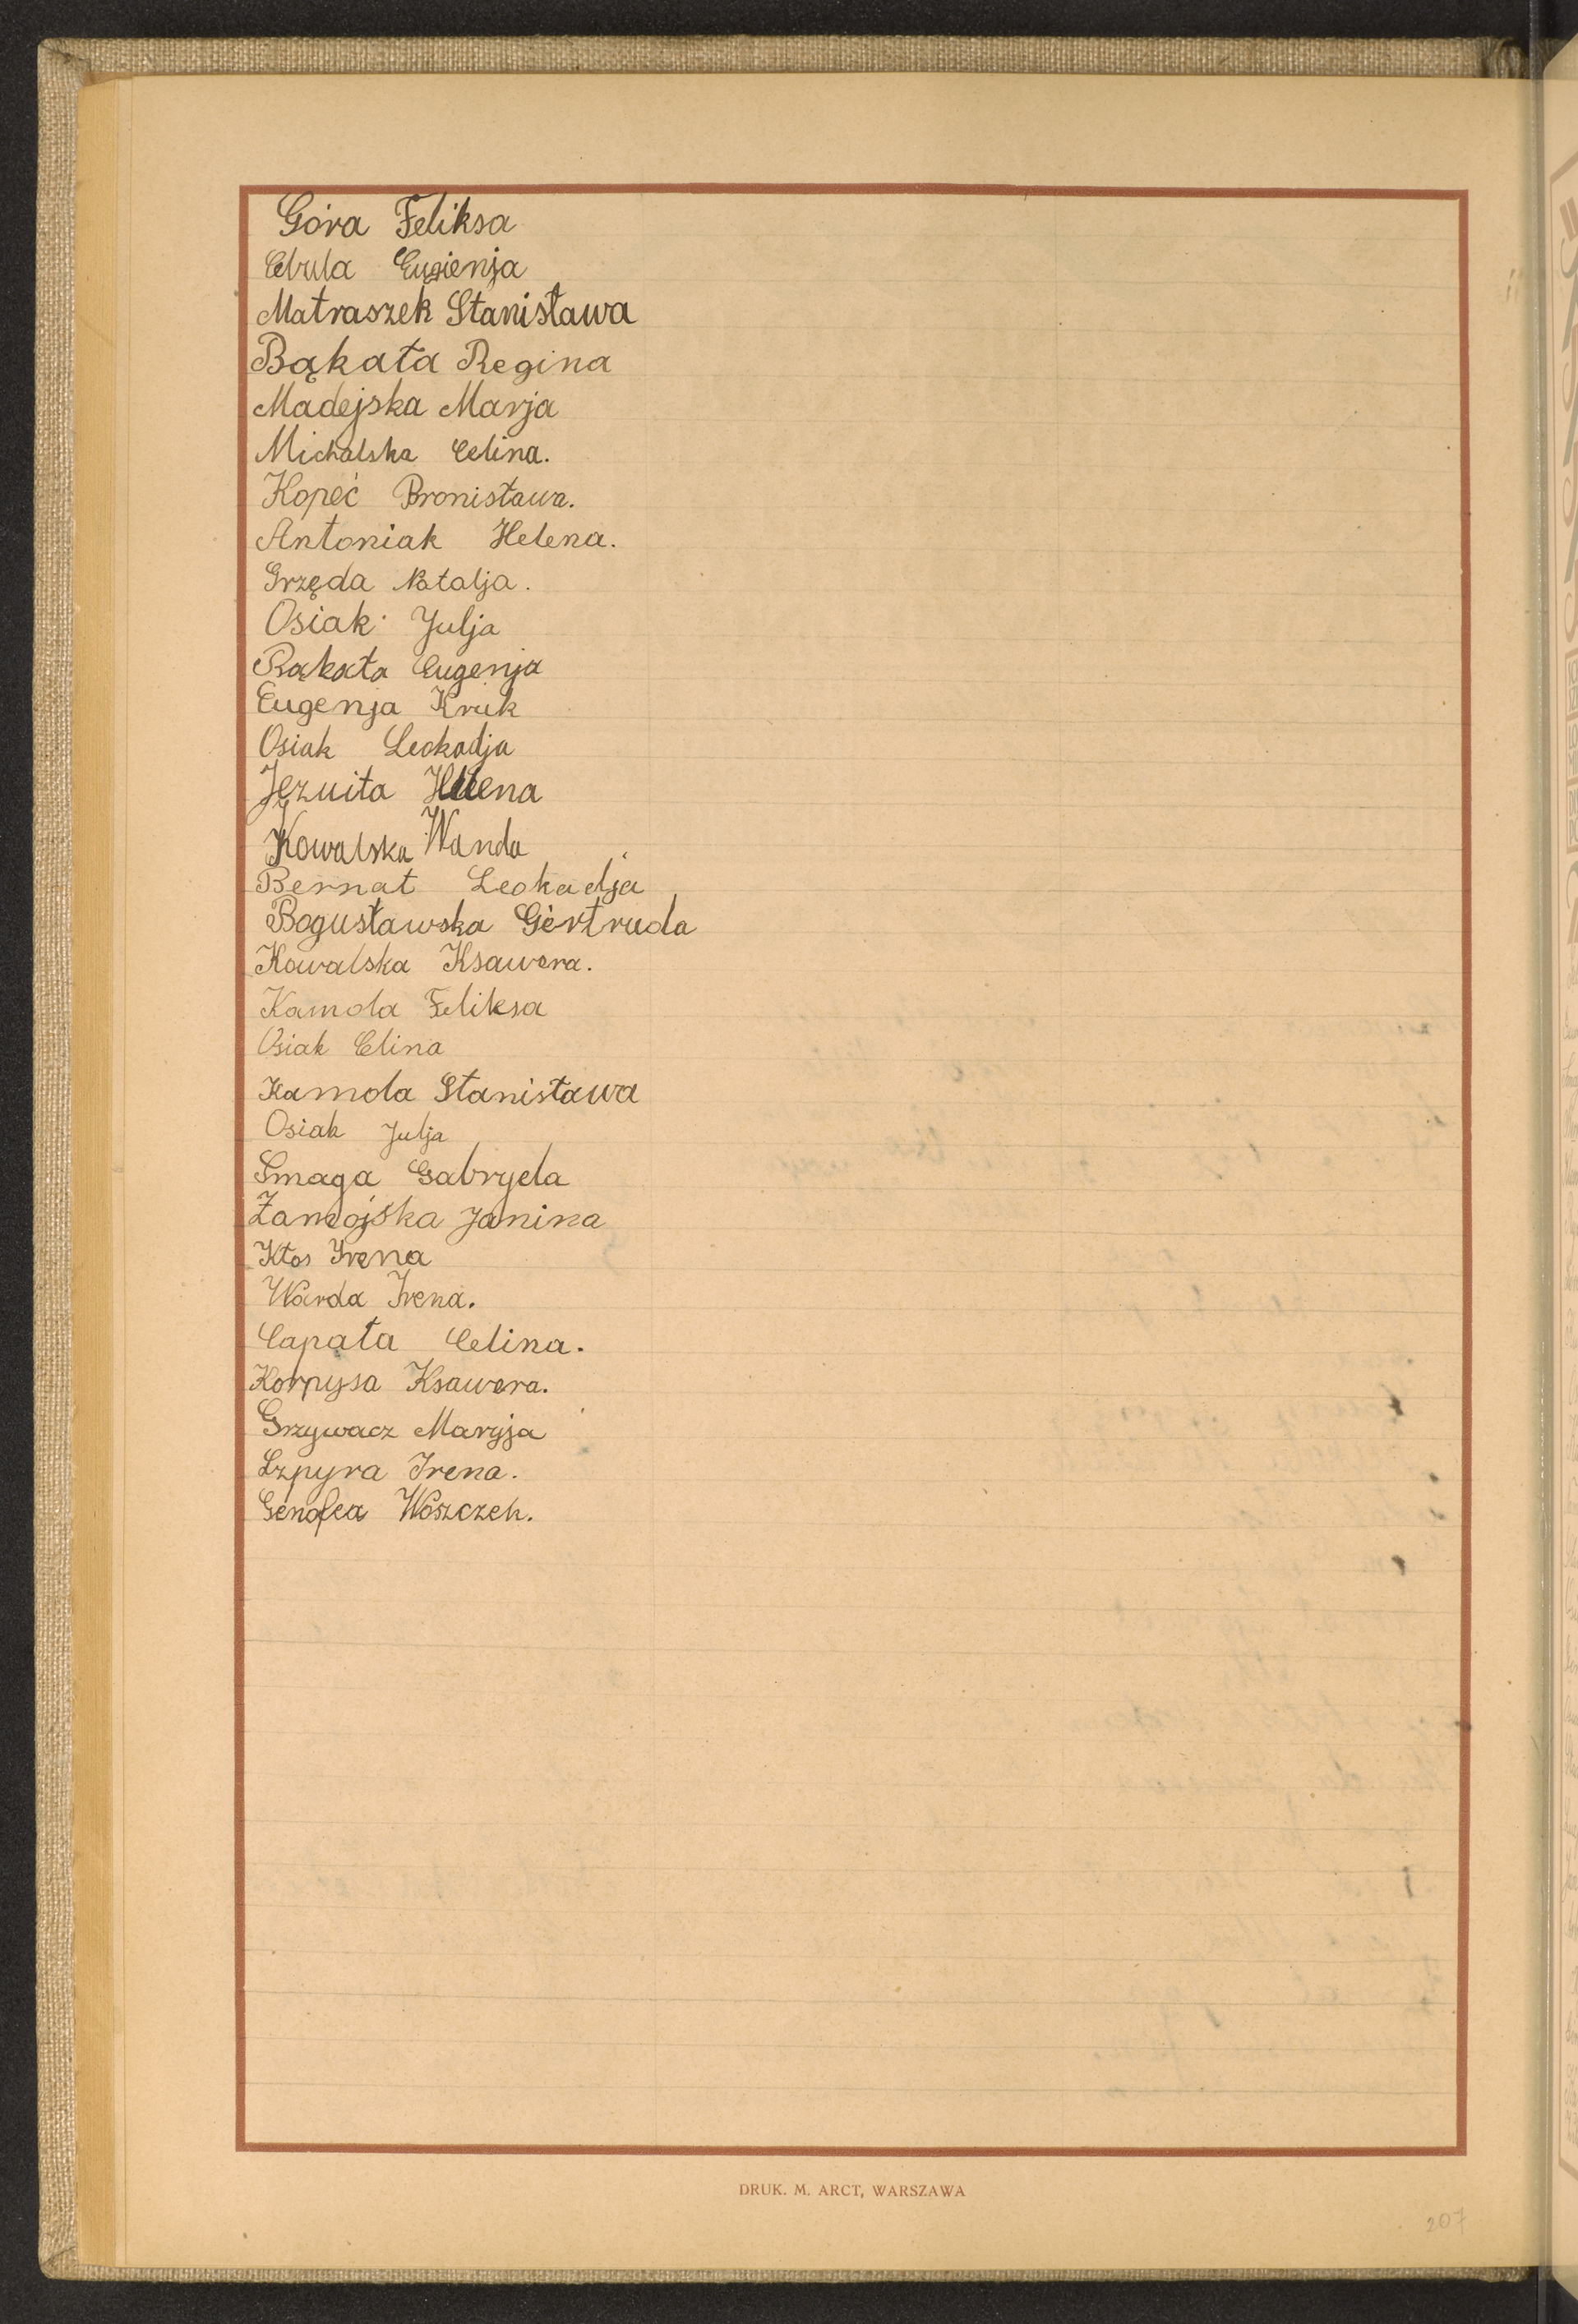 Góra Feliksa
Cebula Eugienja
Matraszek Stanisława
Bąkała Regina
Madejska Marja
Michalska Celina.
Kopeć Bronisława.
Antoniak Helena.
Grzęda Natalja.
Osiak Julja
Bąkała Eugenja
Eugenja Kruk
Osiak Leokadja
Jezuita Helena
Kowalska Wanda
Bernat Leokadja
Bogusławska Gertruda
Kowalska Ksawera.
Kamola Feliksa
Osiak Celina
Kamola Stanisława
Osiak Julja
Smaga Gabryela
Zamojska Janina
Kłos Irena
Warda Irena.
Capała Celina.
Korpysa Ksawera.
Grzywacz Maryja
Szpyra Irena.
Genofea Woszczek.
DRUK. M. ARCT, WARSZAWA
207